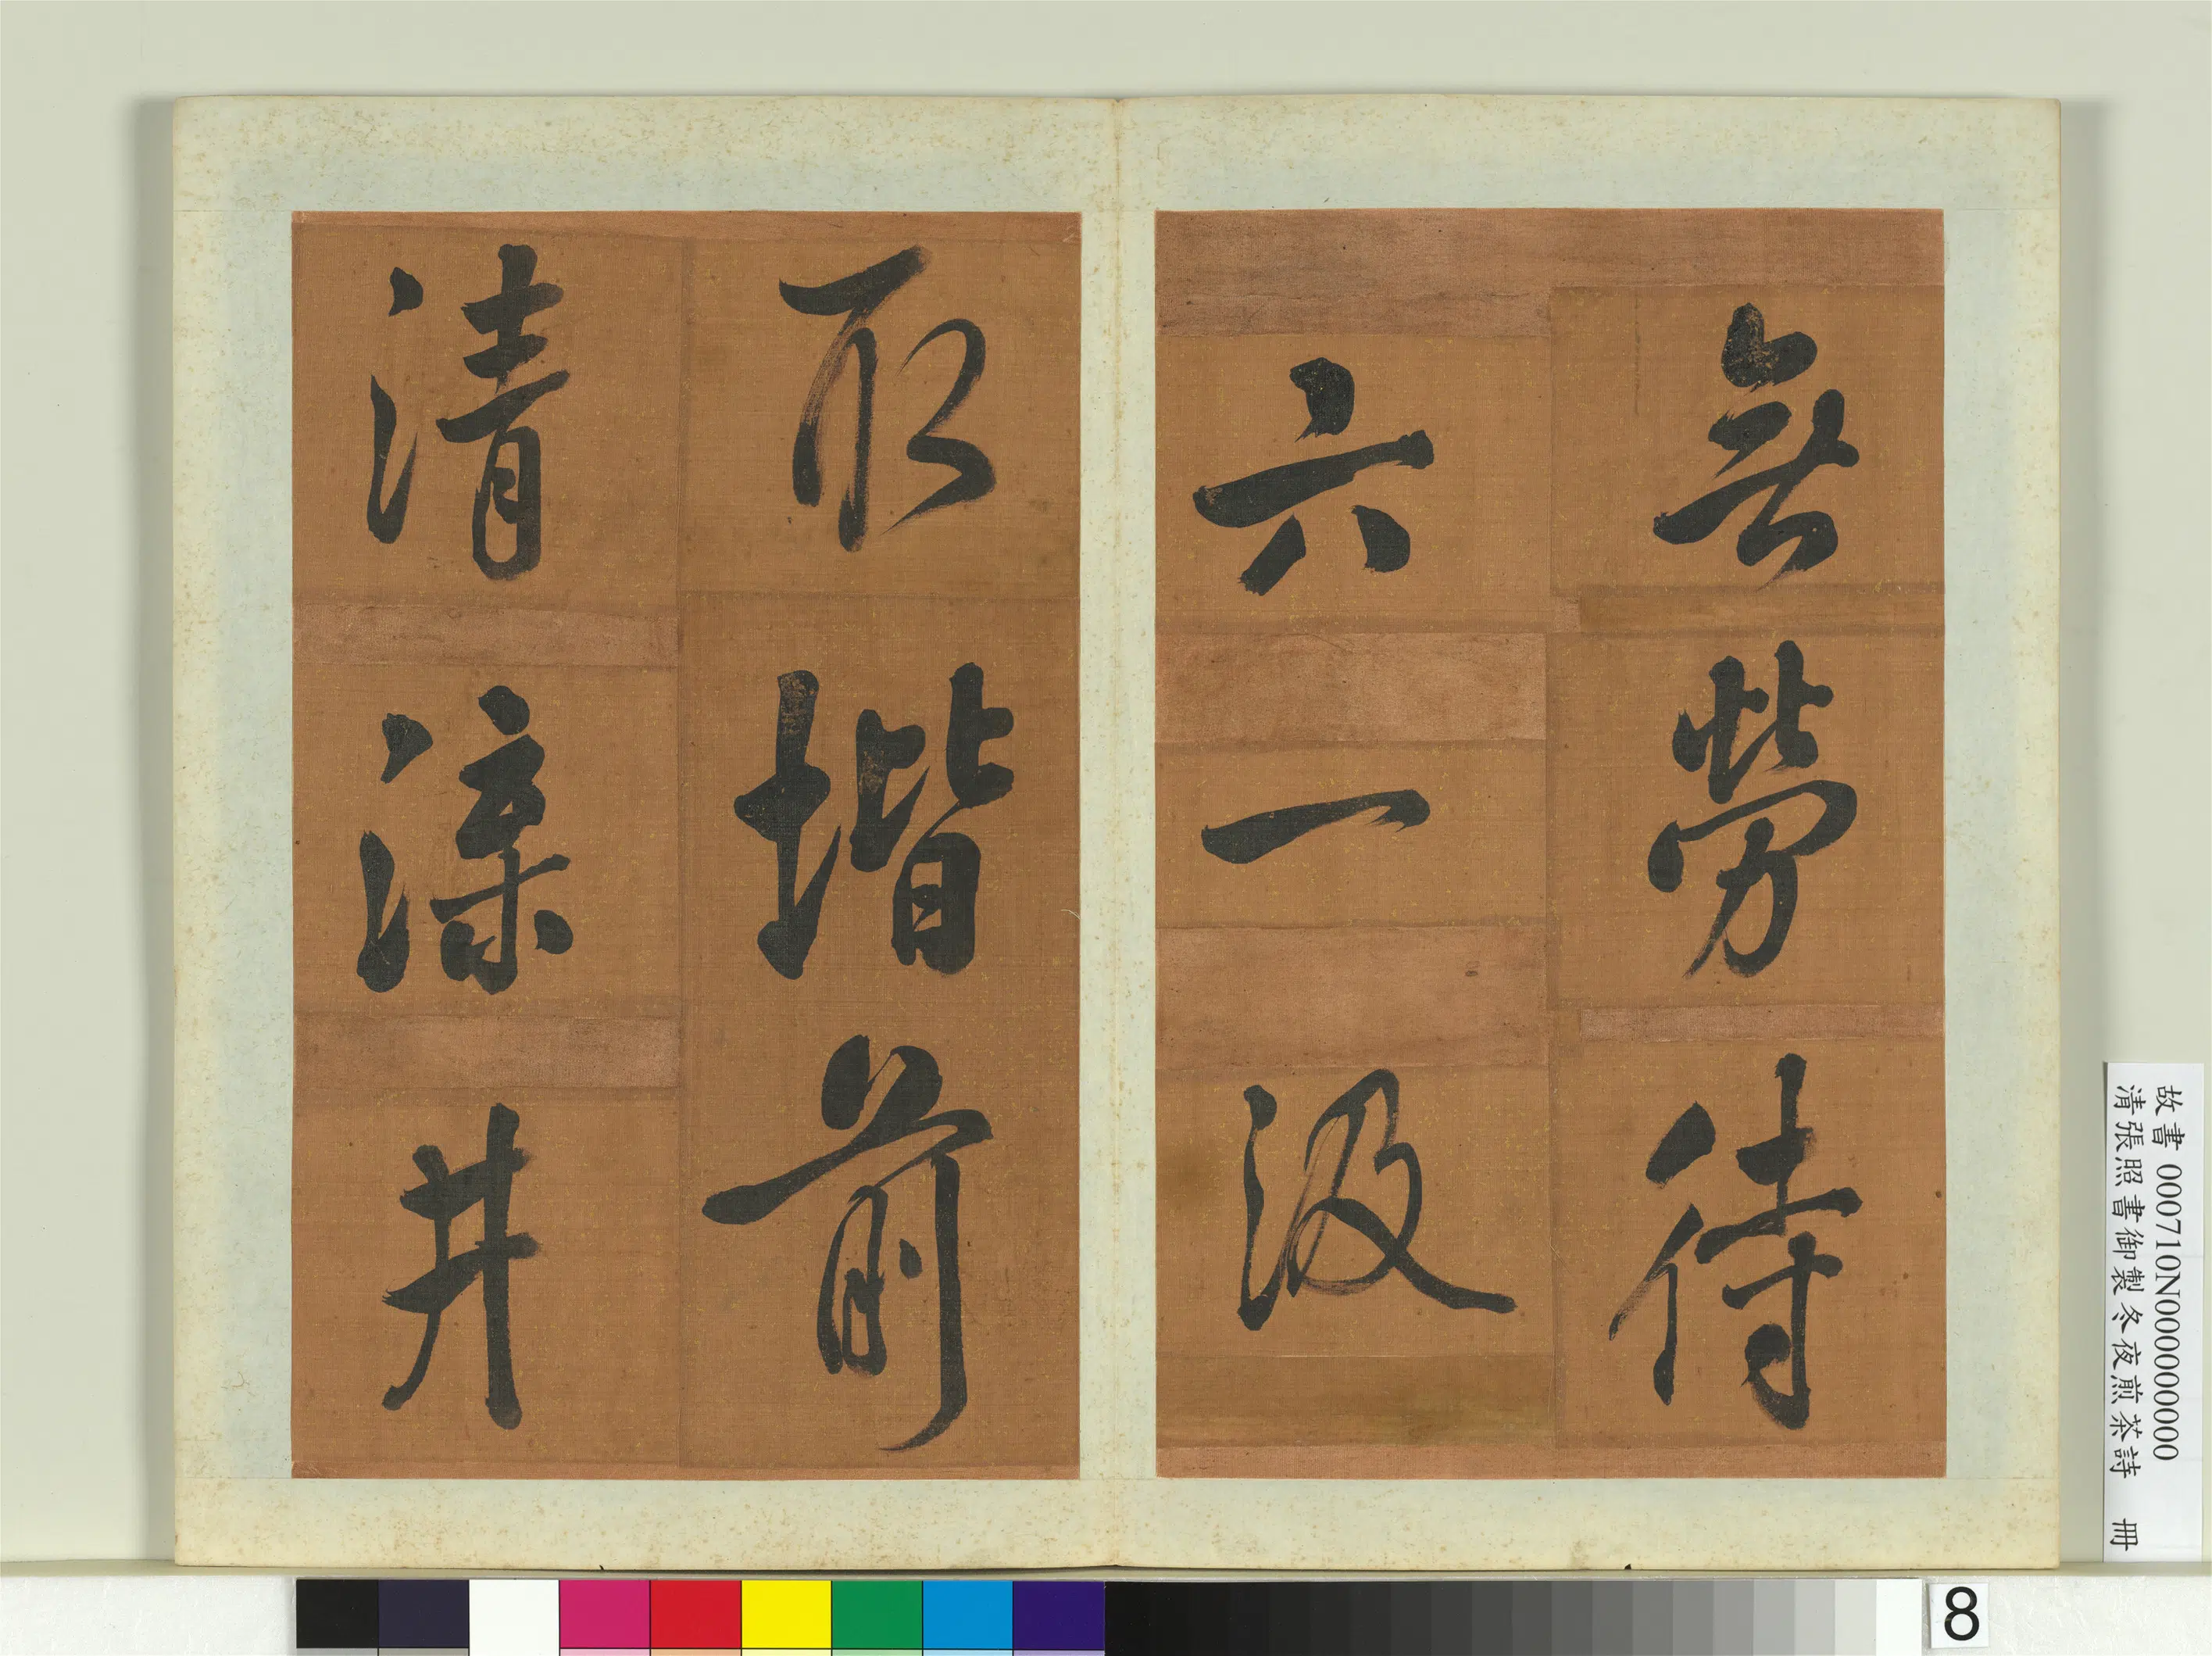 無勞待
六一汲
取堦前
清渫井
故書 000710N000000000
清張照書御製冬夜煎茶詩 冊
8